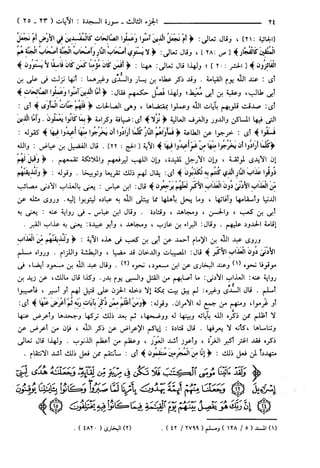 ٢٤ الجزء الثالث - سورة السجدة : الآيات ( ٢٣ - ٢٥ )
[الجاثية : ٢١] ، وقال تعالى : ﴿ أَمْ نَجْعَلُ الَّذِينَ آمَنُوا وَعَمِلُوا الصَّالِحَاتِ كَالْمُفْسِدِينَ فِي الأَرْضِ أَمْ نَجْعَلُ
الْمُتَّقِينَ كَالْفُجَّارِ ﴾ [ ص : ٢٨ ] ، وقال تعالى : ﴿ لا يَسْتَوِي أَصْحَابُ النَّارِ وَأَصْحَابُ الْجَنَّةِ أَصْحَابُ الْجَنَّةِ هُمُ
الْفَائِزُونَ ﴾ [ الحشر : ٢٠ ] ، ولهذا قال تعالى : ههنا : ﴿ أَفَمَن كَانَ مُؤْمِنًا كَمَن كَانَ فَاسِقًا لاَّ يَسْتَوُونَ ﴾
أي : عند الله يوم القيامة . وقد ذكر عطاء بن يسار والسُّدي وغيرهما : أنها نزلت في علي بن
أبي طالب، وعقبة بن أبي مُعَيط ؛ ولهذا فصل حكمهم فقال : ﴿ أَمَّا الَّذِينَ آمَنُوا وَعَمِلُوا الصَّالِحَاتِ ﴾
أي : صدقت قلوبهم بآيات الله وعملوا بمقتضاها ، وهي الصالحات ﴿ فَلَهُمْ جَنَّاتُ الْمَأْوَى ﴾ أي :
التي فيها المساكن والدور والغرف العالية ﴿ نُزُلاً ﴾ أي : ضيافة وكرامة ﴿ بِمَا كَانُوا يَعْمَلُونَ . وَأَمَّا الَّذِينَ
فَسَقُوا ﴾ أي : خرجوا عن الطاعة ﴿ فَمَأْوَاهُمُ النَّارُ كُلَّمَا أَرَادُوا أَن يَخْرُجُوا مِنْهَا أُعِيدُوا فِيهَا ﴾ كقوله :
﴿ كُلَّمَا أَرَادُوا أَن يَخْرُجُوا مِنْهَا مِنْ غَمٍّ أُعِيدُوا فِيهَا ﴾ الآية [ الحج : ٢٢ ] . قال الفضيل بن عياض : والله
إن الأيدي لموثقة ، وإن الأرجل لمقيدة ، وإن اللهب ليرفعهم والملائكة تقمعهم ، ﴿ وَقِيلَ لَهُمْ
ذُوقُوا عَذَابَ النَّارِ الَّذِي كُنتُم بِهِ تُكَذِّبُونَ ﴾ أي : يقال لهم ذلك تقريعًا وتوبيخًا . وقوله : ﴿ وَلَنُذِيقَنَّهُم
مِّنَ الْعَذَابِ الأَدْنَى دُونَ الْعَذَابِ الأَكْبَرِ لَعَلَّهُمْ يَرْجِعُونَ ﴾ قال : ابن عباس : يعني بالعذاب الأدنى مصائب
الدنيا وأسقامها وآفاتها ، وما يحل بأهلها مما يبتلي الله به عباده ليتوبوا إليه. وروى مثله عن
أبي بن كعب ، والحسن ، ومجاهد ، وقتادة . وقال ابن عباس - في رواية عنه : يعني به
إقامة الحدود عليهم . وقال : البراء بن عازب ، ومجاهد ، وأبو عبيدة : يعني به عذاب القبر .
وروى عبد الله بن الإمام أحمد عن أبي بن كعب في هذه الآية : ﴿ وَلَنُذِيقَنَّهُم مِّنَ الْعَذَابِ
الأَدْنَى دُونَ الْعَذَابِ الأَكْبَرِ ﴾ قال : المصيبات والدخان قد مضيا ، والبطشة واللزام . ورواه مسلم
موقوفًا نحوه (١) وعند البخاري عن ابن مسعود، نحوه (٢) . وقال عبد الله بن مسعود أيضًا، في
رواية عنه: العذاب الأدنى : ما أصابهم من القتل والسبي يوم بدر . وكذا قال مالك، عن زيد بن
أسلم . قال السُّدي وغيره: لم يبق بيت بمكة إلا دخله الحزن على قتيل لهم أو أسير ، فأصيبوا
أو غَرموا، ومنهم من جمع له الأمران. وقوله: ﴿ وَمَنْ أَظْلَمُ مِمَّن ذُكِّرَ بِآيَاتِ رَبِّهِ ثُمَّ أَعْرَضَ عَنْهَا ﴾ أي:
لا أظلم ممن ذكره الله بآياته وبينها له ووضحها، ثم بعد ذلك تركها وجحدها وأعرض عنها
وتناساها، كأنه لا يعرفها . قال قتادة : إياكم والإعراض عن ذكر الله ، فإن من أعرض عن
ذكره فقد اغتر أكبر الغرّة ، وأعوز أشد العَوَز ، وعظم من أعظم الذنوب . ولهذا قال تعالى
متهددًا لمن فعل ذلك : ﴿ إِنَّا مِنَ الْمُجْرِمِينَ مُنتَقِمُونَ ﴾ أي : سأنتقم ممن فعل ذلك أشد الانتقام .
وَلَقَدْ ءَاتَيْنَا مُوسَى ٱلْكِتَٰبَ فَلَا تَكُن فِى مِرْيَةٍ مِّن لِّقَآئِهِۦ وَجَعَلْنَٰهُ هُدًى
لِّبَنِىٓ إِسْرَٰٓءِيلَ ﴿٢٣﴾ وَجَعَلْنَا مِنْهُمْ أَئِمَّةً يَهْدُونَ بِأَمْرِنَا لَمَّا صَبَرُوا۟ وَكَانُوا۟ بِـَٔايَٰتِنَا يُوقِنُونَ
﴿٢٤﴾ إِنَّ رَبَّكَ هُوَ يَفْصِلُ بَيْنَهُمْ يَوْمَ ٱلْقِيَٰمَةِ فِيمَا كَانُوا۟ فِيهِ يَخْتَلِفُونَ ﴿٢٥﴾
(١) المسند ( ٥ / ١٢٨ ) ومسلم ( ٢٧٩٩ / ٤٢ ) . (٢) البخاري ( ٤٨٢٠ ) .